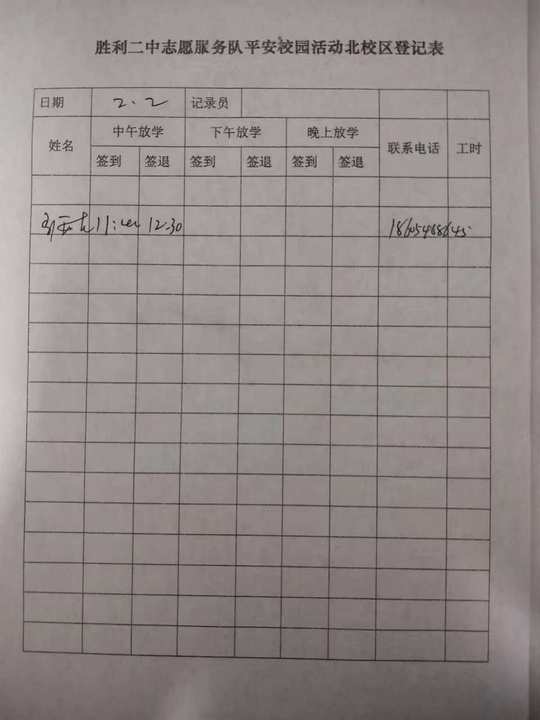 胜利二中志愿服务队平安校园活动北校区登记表
日期 2.2 记录员
姓名 中午放学 下午放学 晚上放学 联系电话 工时
签到 签退 签到 签退 签到 签退
12:30